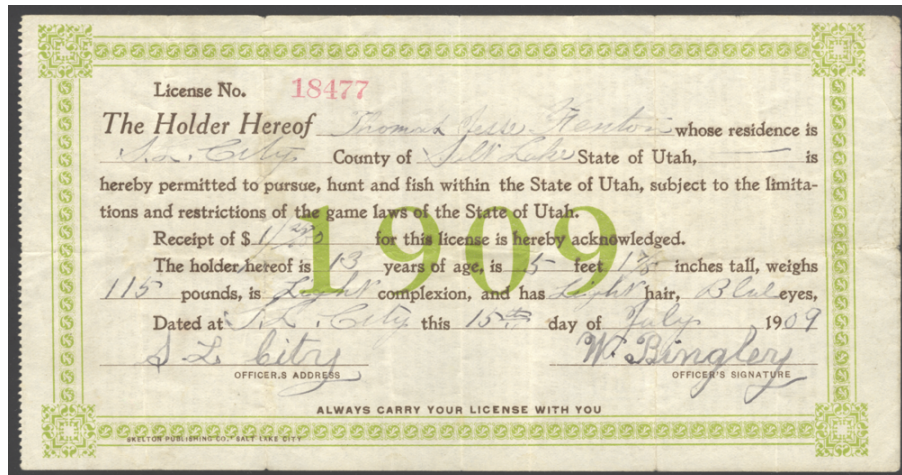 License No. 18477
The Holder Hereof Thomas Jesse Fenton whose residence is
S. L. City County of Salt Lake State of Utah, — is
hereby permitted to pursue, hunt and fish within the State of Utah, subject to the limita-
tions and restrictions of the game laws of the State of Utah.
1909
Receipt of $ 1 for this license is hereby acknowledged.
The holder hereof is 13 years of age, is 5 feet inches tall, weighs
115 pounds, is Light complexion, and has Light hair, Blue eyes,
Dated at S. L. City this 15th day of July 1909
S L City W. Bingley
OFFICER.S ADDRESS OFFICER'S SIGNATURE
ALWAYS CARRY YOUR LICENSE WITH YOU
SKELTON PUBLISHING CO. SALT LAKE CITY